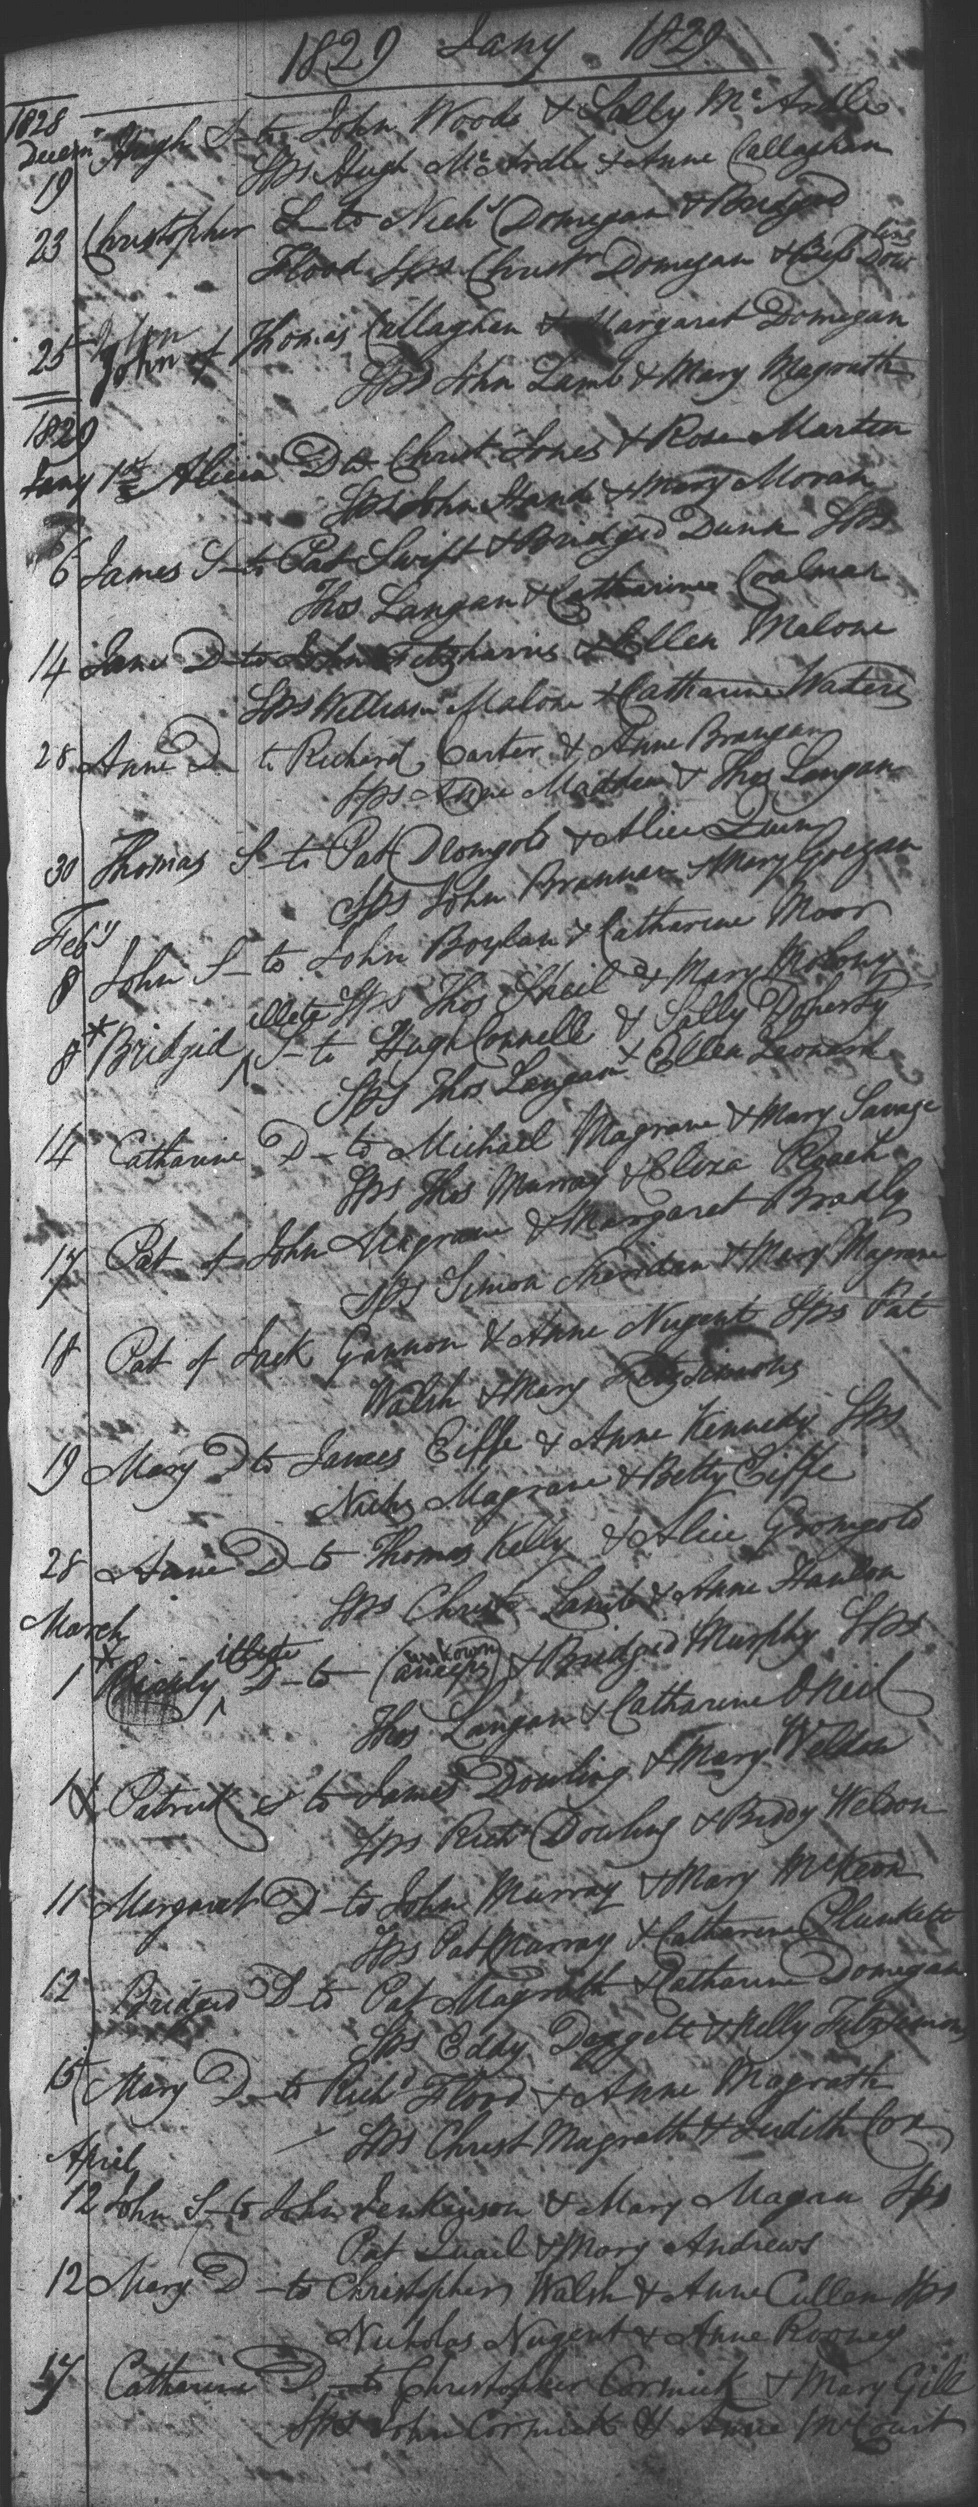 1829 Jany 1829
1828
Decem
19 Hugh S - to John Woods & Sally Mc Ardle
Sps Hugh Mc Ardle & Anne Callaghan
23 Christopher S - to Nichs Domegan & Bridged
Flood Sps Christr Domegan & Bess Dow
ling
25 John
John of Thomas Callaghan & Margaret Domegan
Sps John Lamb & Mary Magrath
1829
Jany 1st Alicia D to Christ Jones & Rose Martin
Sps John Hand & Mary Moran
6 James S - to Pat Swift & Bridged Dunn Sps
Thos Langan & Catharine Coalman
14 Jane D - to John Fitzharris & Ellen Malone
Sps William Malone & Catharine Waters
28 Anne D to Richard Carter & Anne Brangan
Sps Anne Madden & Thos Langan
30 Thomas S - to Pat Dromgold & Alice Quin
Sps John Brannan & Mary Goegan
Feby
8 John S - to John Boylan & Catharine Moor
Sps Thos Sheil & Mary
illeta
8 * Bridgid ^ S - to Hugh Connell & Sally Doherty
Sps Thos Langan & Ellen Leonard
14 Catharine D - to Michael Magrane & Mary Savage
Sps Thos Murray & Eliza Roach
17 Pat of John Magrane & Margaret Bradly
Sps Simon Sheridan & Mary Magrane
18 Pat of Jack Gannon & Anne Nugent Sps Pat
Walsh & Mary Fitzsimons
19 Mary D to James Eiffe & Anne Kennedy Sps
Nichs Magrane & Betty Eiffe
28 Anne D - to Thomas Kelly & Alice Gromgold
Sps Christr Lamb & Anne Hanlon
March
* illeta unkown
1 ^ D - to (anceps) & Bridged Murphy Sps
Thos Langan & Catharine O Neil
1 Patrick S to James Dowling & Mary Weldon
Sps Richd Dowling & Biddy Weldon
11 Margaret D - to John Murray & Mary McKeon
Sps Pat Murray & Catharine Plunkett
12 Bridged D - to Pat Magrath & Catharine Domegan
Sps Eddy Daggett & Nelly Fitzsimons
15 Mary D - to Richd Flood & Anne Magrath
Sps Christ Magrath & Judith Cox
April
12 John S - to John Jenkinson & Mary Magan Sps
Pat Quail & Mary Andrews
12 Mary D - to Christopher Walsh & Anne Cullen Sps
Nicholas Nugent & Anne Rooney
17 Catharine D - to Christopher Cormick & Mary Gill
Sps John Cormick & Anne McCourt